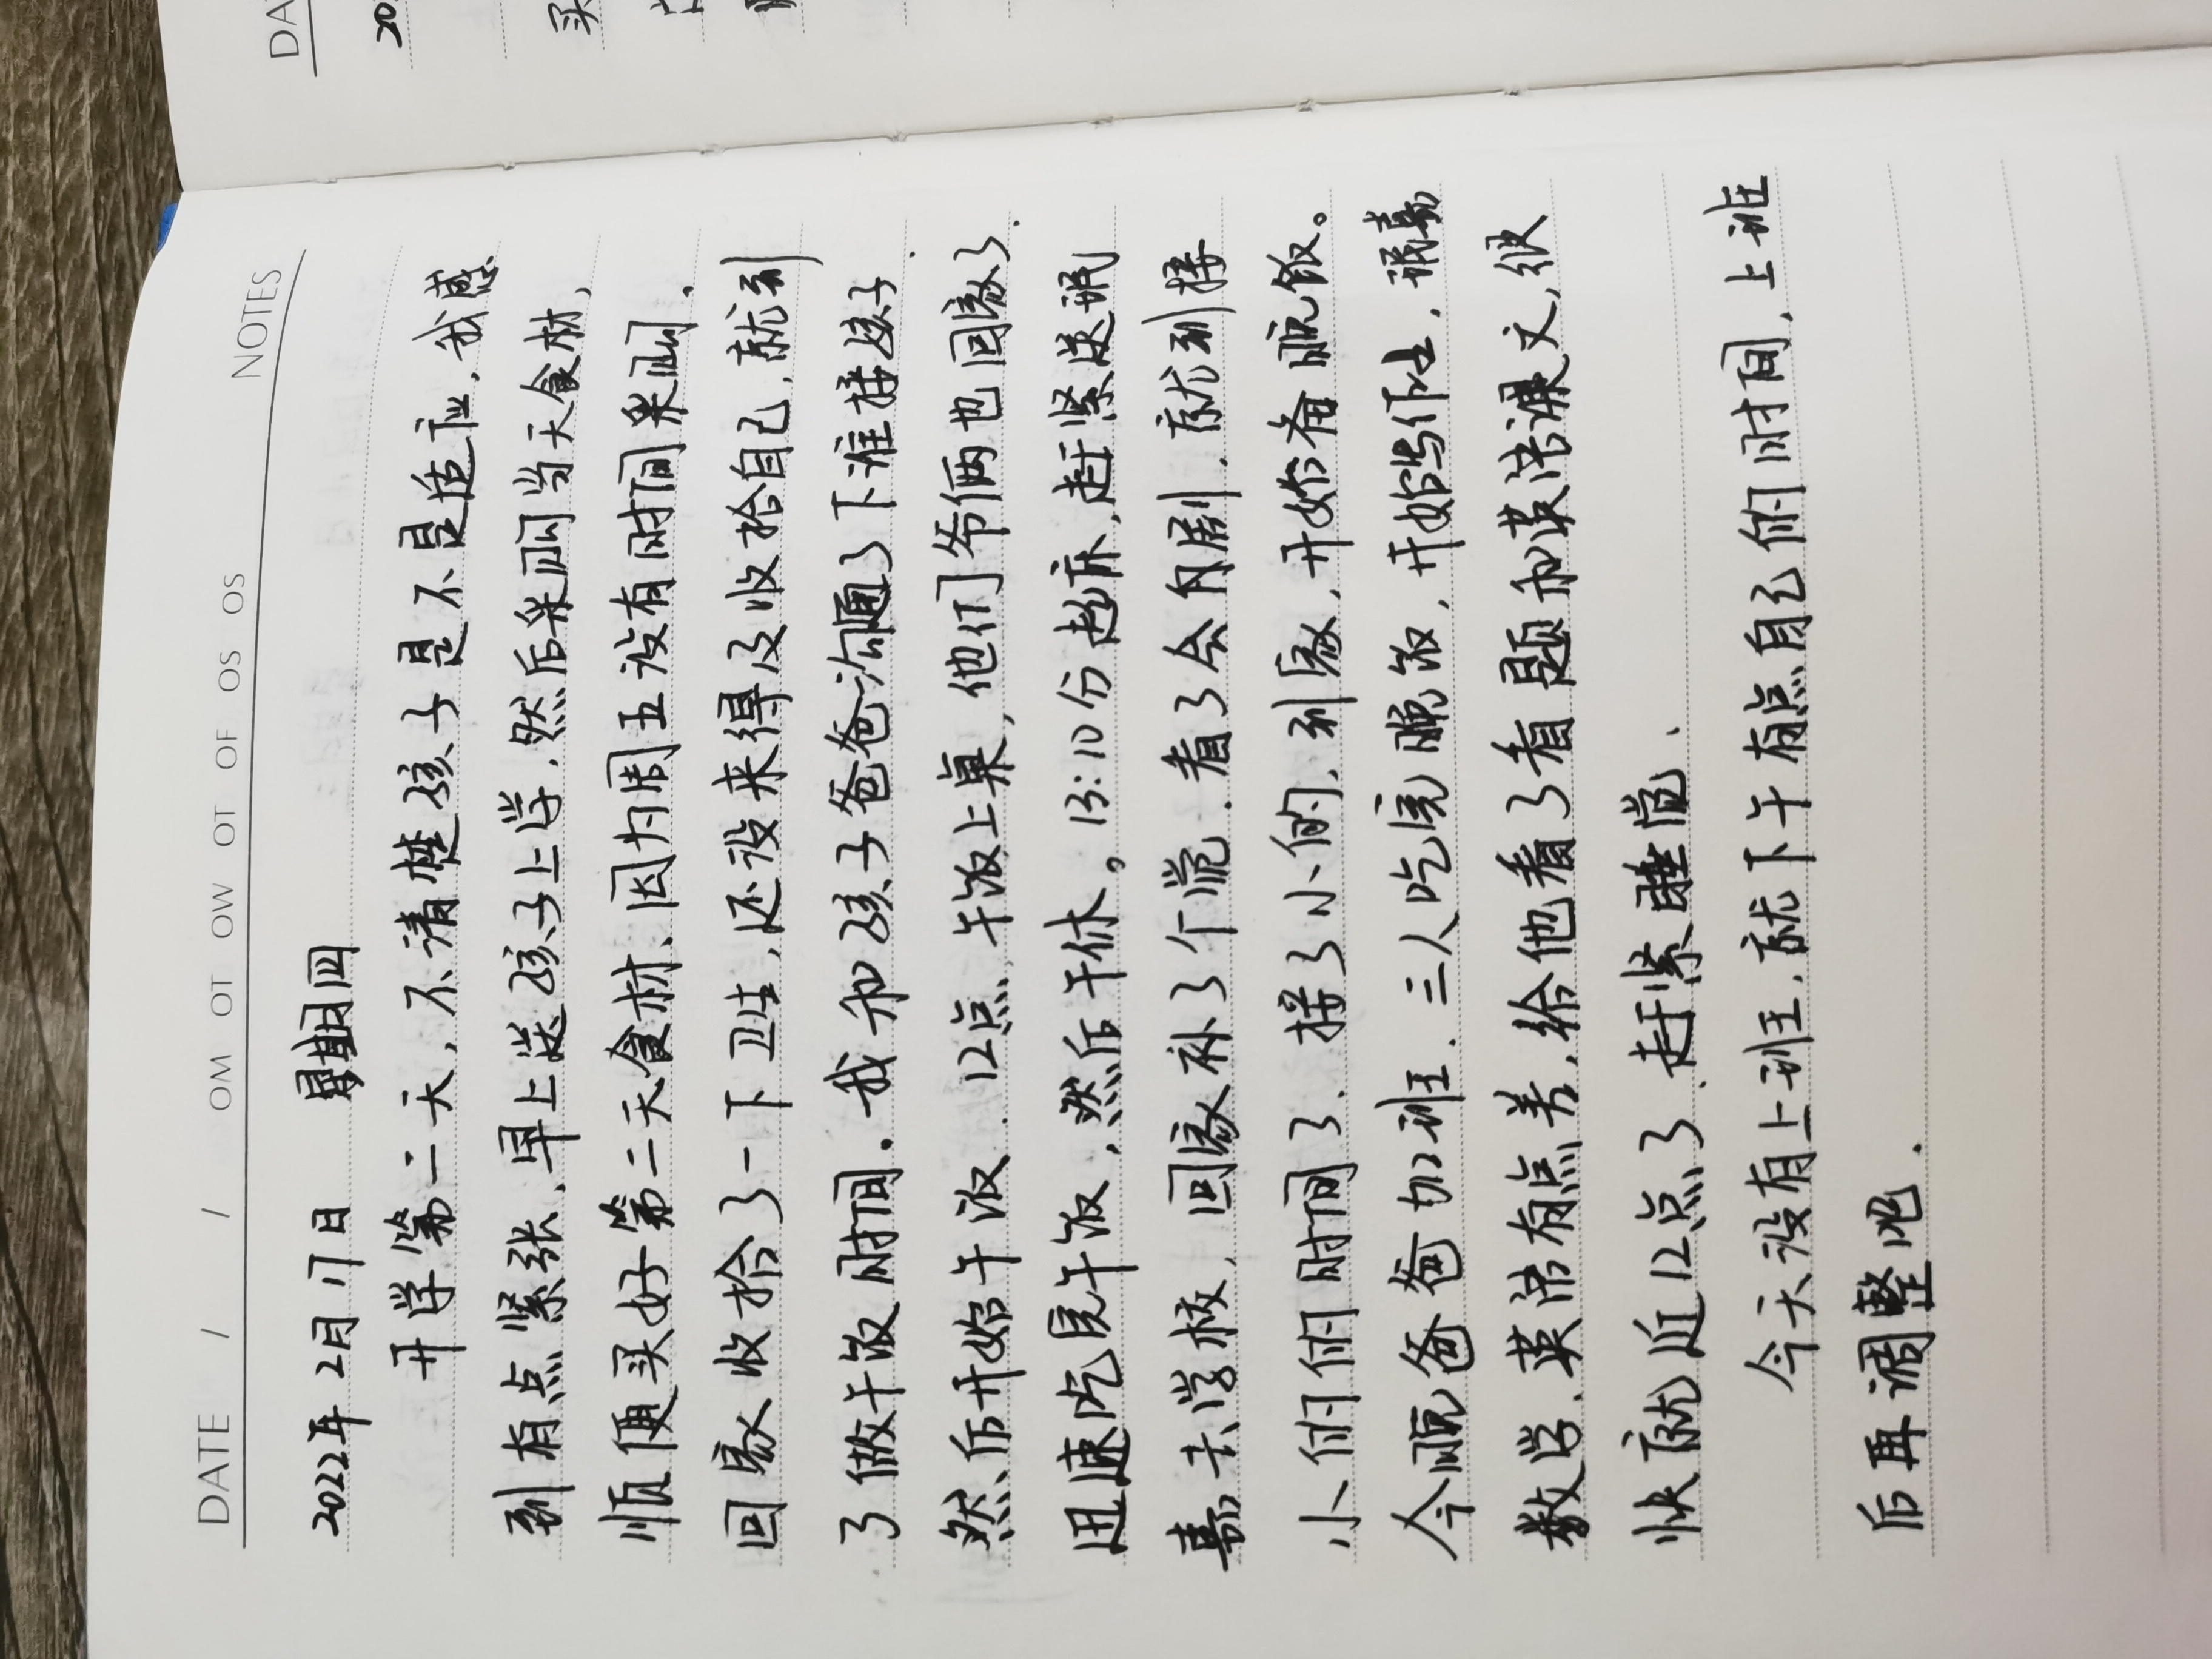 DATE / / OM OT OW OT OF OS OS NOTES
2022年2月17日 星期四
开学第二天,不清楚孩子是不是适应,我感
到有点紧张、早上送孩子上学,然后采购当天食材,
顺便买好第二天食材、因为周五没有时间采购.
回家收拾了一下卫生,还没来得及收拾自己,就到
了做午饭时间.我和孩子爸爸沟通了下谁接孩子.
然后开始午饭.12点、午饭上桌,他们爷俩也回家了.
迅速吃完午饭,然后午休。13:10分起床,赶紧送珉
嘉去学校,回家补了个觉.看了会甪剧.就到接
小的的时间了.接了小的,到家,开始备晚饭。
今晚爸爸加班.三人吃完晚饭,开始写作业,珉嘉
数学.英语有点差,给他看了看题和英语课文,很
快就近12点了.赶紧睡觉、
今天没有上班,就下午有点自己的时间,上班
后再调整吧.
DA
20
买